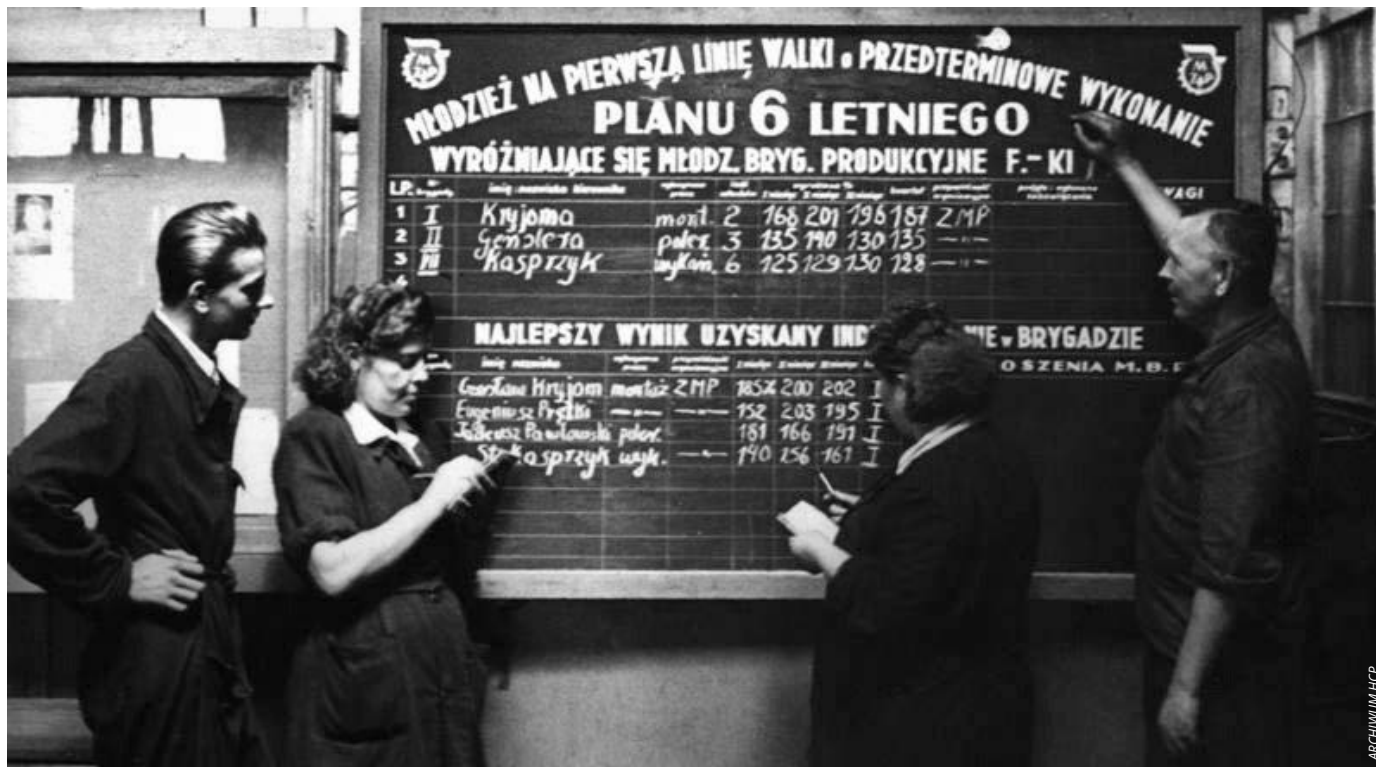 MŁODZIEŻ NA PIERWSZĄ LINIĘ WALKI o PRZEDTERMINOWE WYKONANIE
PLANU 6 LETNIEGO
WYRÓŻNIAJĄCE SIĘ MŁODZ. BRYG. PRODUKCYJNE F.-KI
ZMP
ZMP
L.P. imię nazwisko kierownika kwartał WAGI
1 I Kryjoma mont. 2 168 201 196 187 ZMP
2 II poler. 3 135 140 130 135 —"—
3 VII Kasprzyk wykań. 6 125 129 130 128 —"—
4
NAJLEPSZY WYNIK UZYSKANY IND NIE w BRYGADZIE
imię nazwisko OSZENIA M.B.P
Kryjom montaż ZMP 185% 200 202 I
Eugeniusz Prętki —"— —"— 152 203 195 I
Tadeusz Pawłowski poler. 181 166 191 I
St. Kasprzyk wyk. —"— 140 256 161 I
ARCHIWUM HCP